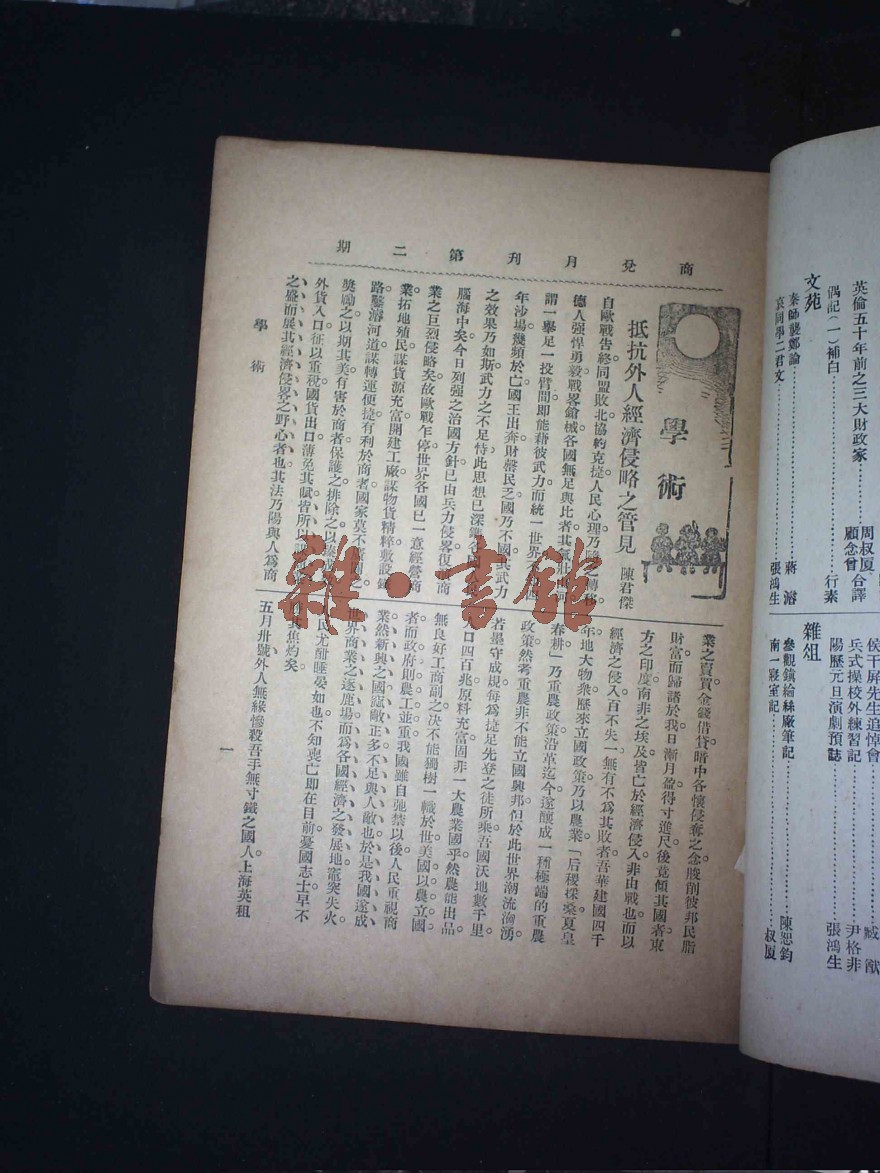 英倫五十年前之三大財政家
周叔厦
顧念曾
合譯
偶記(一)補白
行素
文苑
秦師襲鄭論
蔣濬
哀同學二君文
張鴻生
侯干屏先生追悼會
臧猷
兵式操校外練習記
尹格非
陽歷元旦演劇預誌
張鴻生
雜俎
參觀鎮綸絲廠筆記
陳恕鈞
南一寢室記
叔厦
商兌月刊第二期
學術
抵抗外人經濟侵略之管見
陳君傑
自歐戰告終同盟敗北協約克捷人民心理乃隨之轉移
德人強悍勇毅戰畧鎗械各國無足與比者其氣壯山河
謂一舉足一投臂間即能藉彼武力而統一世界不
年沙場幾頻於亡國王出奔財罄民乏國乃不國其武力
之效果乃如斯武力之不足恃此思想已深鐫各國
腦海中矣今日列强之治國方針已由兵力侵畧復
商
業之巨烈侵略矣故歐戰乍停世界各國已一意經營商
業拓地殖民謀貨源充富開建工廠謀物貨精粹敷設鐵
路鑿濬河道謀轉運便捷有利於商者國家莫不
獎勵之以期其美有害於商者保護之排除之以
外貨入口征以重稅國貨出口薄免其賦皆所以
之盛而展其經濟侵畧之野心者也其法乃陽與人爲商
業之賣買金錢借貸暗中各懷侵奪之念朘削彼邦民脂
財富而歸諸於我日漸月盈得寸進尺後竟傾其國者東
方之印度南非之埃及皆亡於經濟侵入非由戰也而以
經濟之侵入百不失一無有不爲其敗者吾華建國四千
年地大物衆歷來立國政策乃以農業「后稷採桑夏皇
春耕」乃重農政策沿革迄今遂釀成一種極端的重農
政策然考重農非不能立國興邦但於此世界潮流洶湧
若墨守成規每爲捷足先登之徒所乘吾國沃地數千里
人口四百兆原料充富固非一大農業國乎然農能出品
無良好工商副之决不能獨樹一幟於世美國以農立國
者而政府則農工並重我國雖自弛禁以後人民重視商
業然新興之國讎敵正多不足與人敵也於是我國遂成
世界商業之逐鹿場而爲各國經濟之發展地竈突失火
民尤酣睡晏如也不知喪亡即在目前憂國志士早不
其焦灼矣
五月卅號外人無緣慘殺吾手無寸鐵之國人上海英租
學術
一
雜·書館